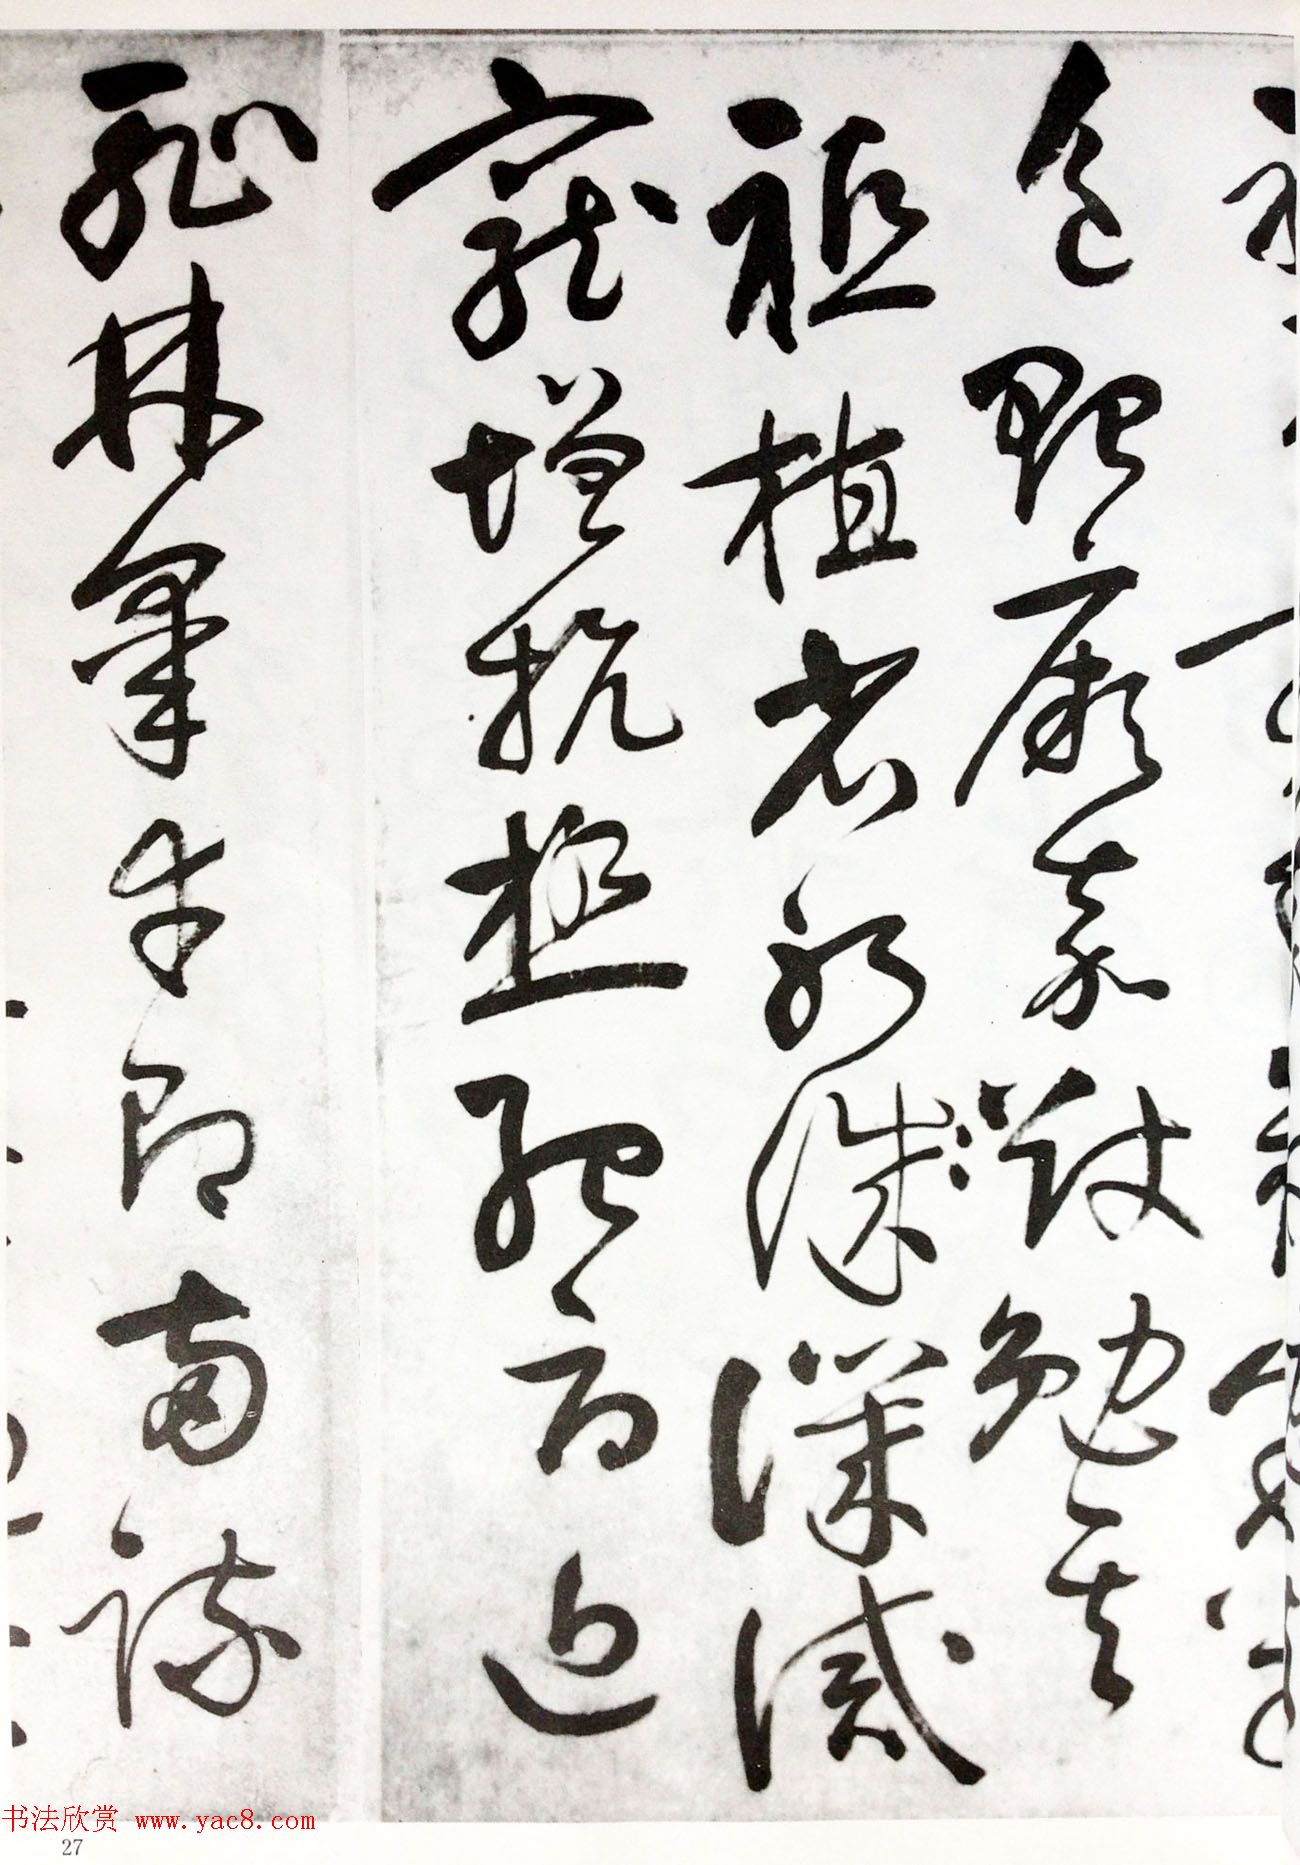 色貽厥嘉猷勉其
祗植省躬誡譏誡
寵增抗極殆辱近
恥林皋幸即兩疏
书法欣赏 www.yac8.com
27